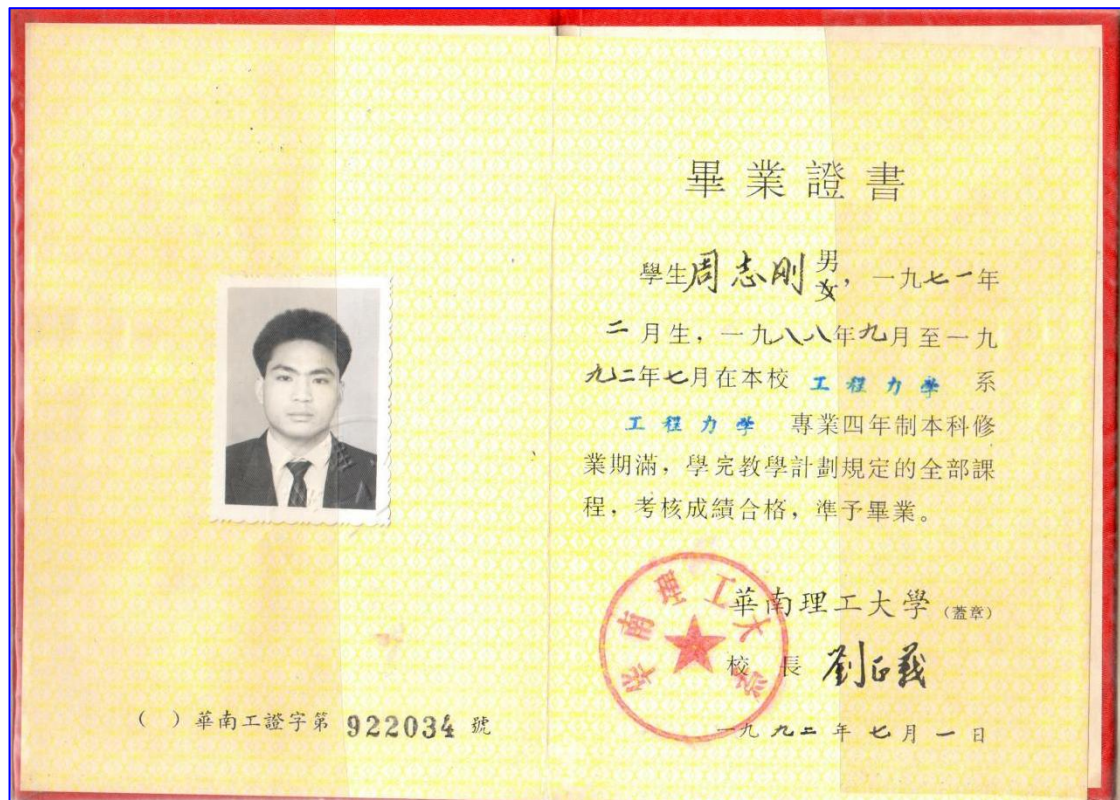 畢業證書
學生周志刚男女，一九七一年
二月生，一九八八年九月至一九
九二年七月在本校 工程力學 系
工程力學 專業四年制本科修
業期滿，學完教學計劃規定的全部課
程，考核成績合格，準予畢業。
華南理工大學（蓋章）
校長 劉正義
一九九二年七月一日
华南理工大学
（ ）華南工證字第 922034 號